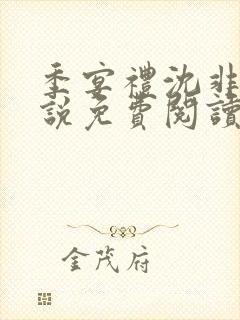 季宴禮沈非
說免費閱讀
金茂府